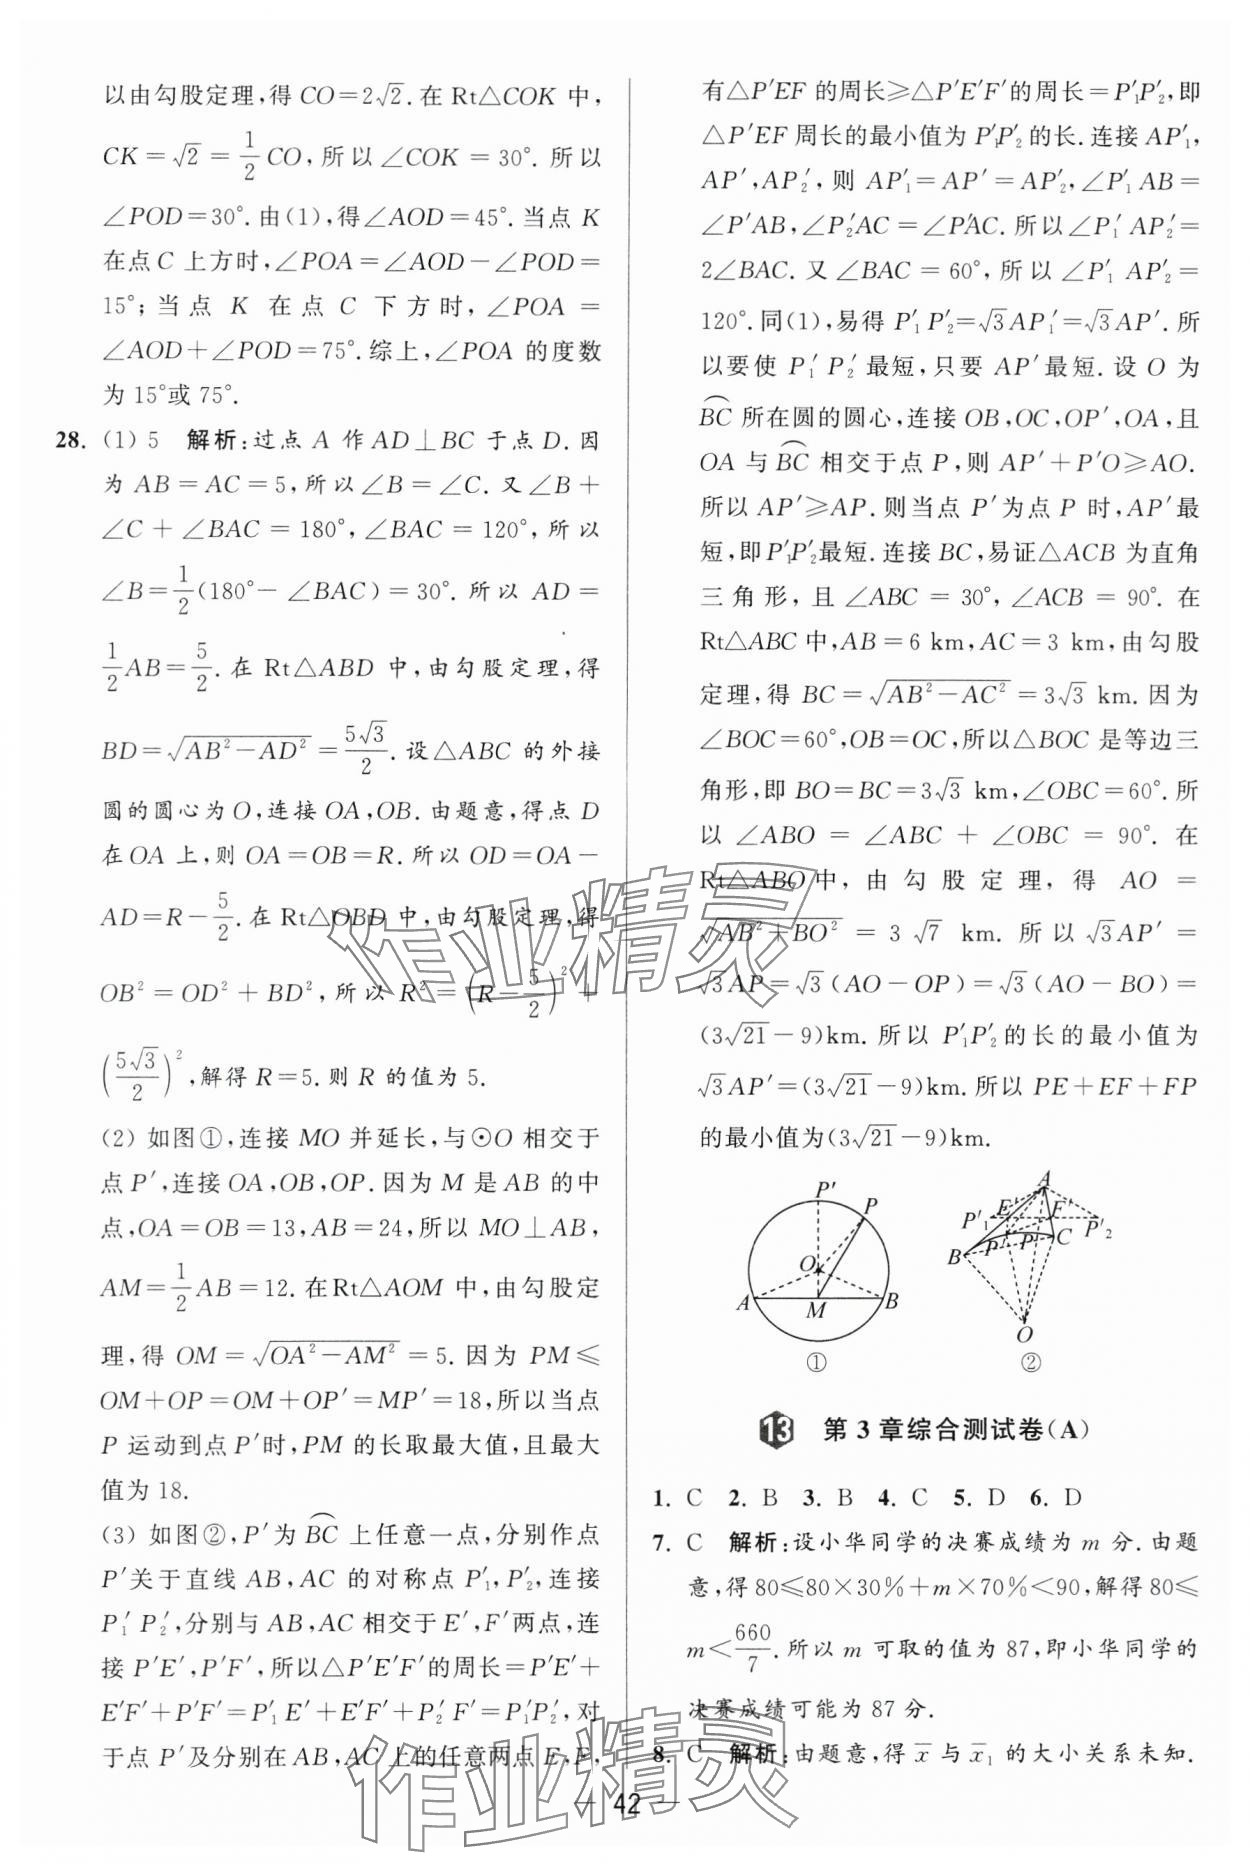 以由勾股定理,得 CO=2√2. 在 Rt△COK 中,
CK=√2=1/2 CO,所以∠COK=30°. 所以
∠POD=30°. 由(1),得∠AOD=45°. 当点 K
在点C 上方时,∠POA=∠AOD-∠POD=
15°;当点 K 在点 C 下方时,∠POA=
∠AOD+∠POD=75°. 综上,∠POA 的度数
为 15°或 75°.
28. (1) 5 解析:过点 A 作 AD⊥BC 于点 D. 因
为 AB=AC=5,所以∠B=∠C. 又∠B+
∠C+∠BAC=180°,∠BAC=120°,所以
∠B=1/2(180°-∠BAC)=30°. 所以 AD=
1/2 AB=5/2. 在 Rt△ABD 中,由勾股定理,得
BD=√(AB²-AD²)=5√3/2. 设△ABC 的外接
圆的圆心为 O,连接 OA,OB. 由题意,得点 D
在OA 上,则 OA=OB=R. 所以 OD=OA-
AD=R-5/2. 在 Rt△OBD 中,由勾股定理,得
OB²=OD²+BD²,所以 R²=(R-5/2)²+
(5√3/2)²,解得 R=5. 则 R 的值为 5.
(2) 如图①,连接 MO 并延长,与⊙O 相交于
点 P′,连接 OA,OB,OP. 因为 M 是 AB 的中
点,OA=OB=13,AB=24,所以 MO⊥AB,
AM=1/2 AB=12. 在Rt△AOM 中,由勾股定
理,得 OM=√(OA²-AM²)=5. 因为 PM≤
OM+OP=OM+OP′=MP′=18,所以当点
P 运动到点 P′时,PM 的长取最大值,且最大
值为 18.
(3) 如图②,P′为 ⌒BC 上任意一点,分别作点
P′关于直线 AB,AC 的对称点 P′₁,P′₂,连接
P′₁P′₂,分别与 AB,AC 相交于 E′,F′两点,连
接 P′E′,P′F′,所以△P′E′F′的周长=P′E′+
E′F′+P′F′=P′₁E′+E′F′+P′₂F′=P′₁P′₂,对
于点 P′及分别在 AB,AC 上的任意两点 E,F,
有△P′EF 的周长≥△P′E′F′的周长=P′₁P′₂,即
△P′EF 周长的最小值为 P′₁P′₂ 的长. 连接 AP′₁,
AP′,AP′₂,则 AP′₁=AP′=AP′₂,∠P′₁AB=
∠P′AB,∠P′₂AC=∠P′AC. 所以∠P′₁AP′₂=
2∠BAC. 又∠BAC=60°,所以∠P′₁AP′₂=
120°. 同(1),易得 P′₁P′₂=√3AP′₁=√3AP′. 所
以要使 P′₁P′₂ 最短,只要 AP′最短. 设 O 为
⌒BC 所在圆的圆心,连接 OB,OC,OP′,OA,且
OA 与 ⌒BC 相交于点 P,则 AP′+P′O≥AO.
所以 AP′≥AP. 则当点 P′为点 P 时,AP′最
短,即P′₁P′₂最短. 连接 BC,易证△ACB 为直角
三角形,且∠ABC=30°,∠ACB=90°. 在
Rt△ABC 中,AB=6 km,AC=3 km,由勾股
定理,得 BC=√(AB²-AC²)=3√3 km. 因为
∠BOC=60°,OB=OC,所以△BOC 是等边三
角形,即 BO=BC=3√3 km,∠OBC=60°. 所
以∠ABO=∠ABC+∠OBC=90°. 在
Rt△ABO中,由勾股定理,得 AO=
√(AB²+BO²)=3√7 km. 所以 √3AP′=
√3AP=√3(AO-OP)=√3(AO-BO)=
(3√21-9)km. 所以 P′₁P′₂的长的最小值为
√3AP′=(3√21-9)km. 所以 PE+EF+FP
的最小值为(3√21-9)km.
P′ P O A M B
①
A E′ F′ P′₁ P′₂ B P′ P C O
②
13 第 3 章综合测试卷(A)
1. C 2. B 3. B 4. C 5. D 6. D
7. C 解析:设小华同学的决赛成绩为 m 分. 由题
意,得 80≤80×30%+m×70%<90,解得 80≤
m<660/7. 所以 m 可取的值为 87,即小华同学的
决赛成绩可能为 87 分.
8. C 解析:由题意,得 x̄ 与 x̄₁ 的大小关系未知.
— 42 —
作业精灵
作业精灵